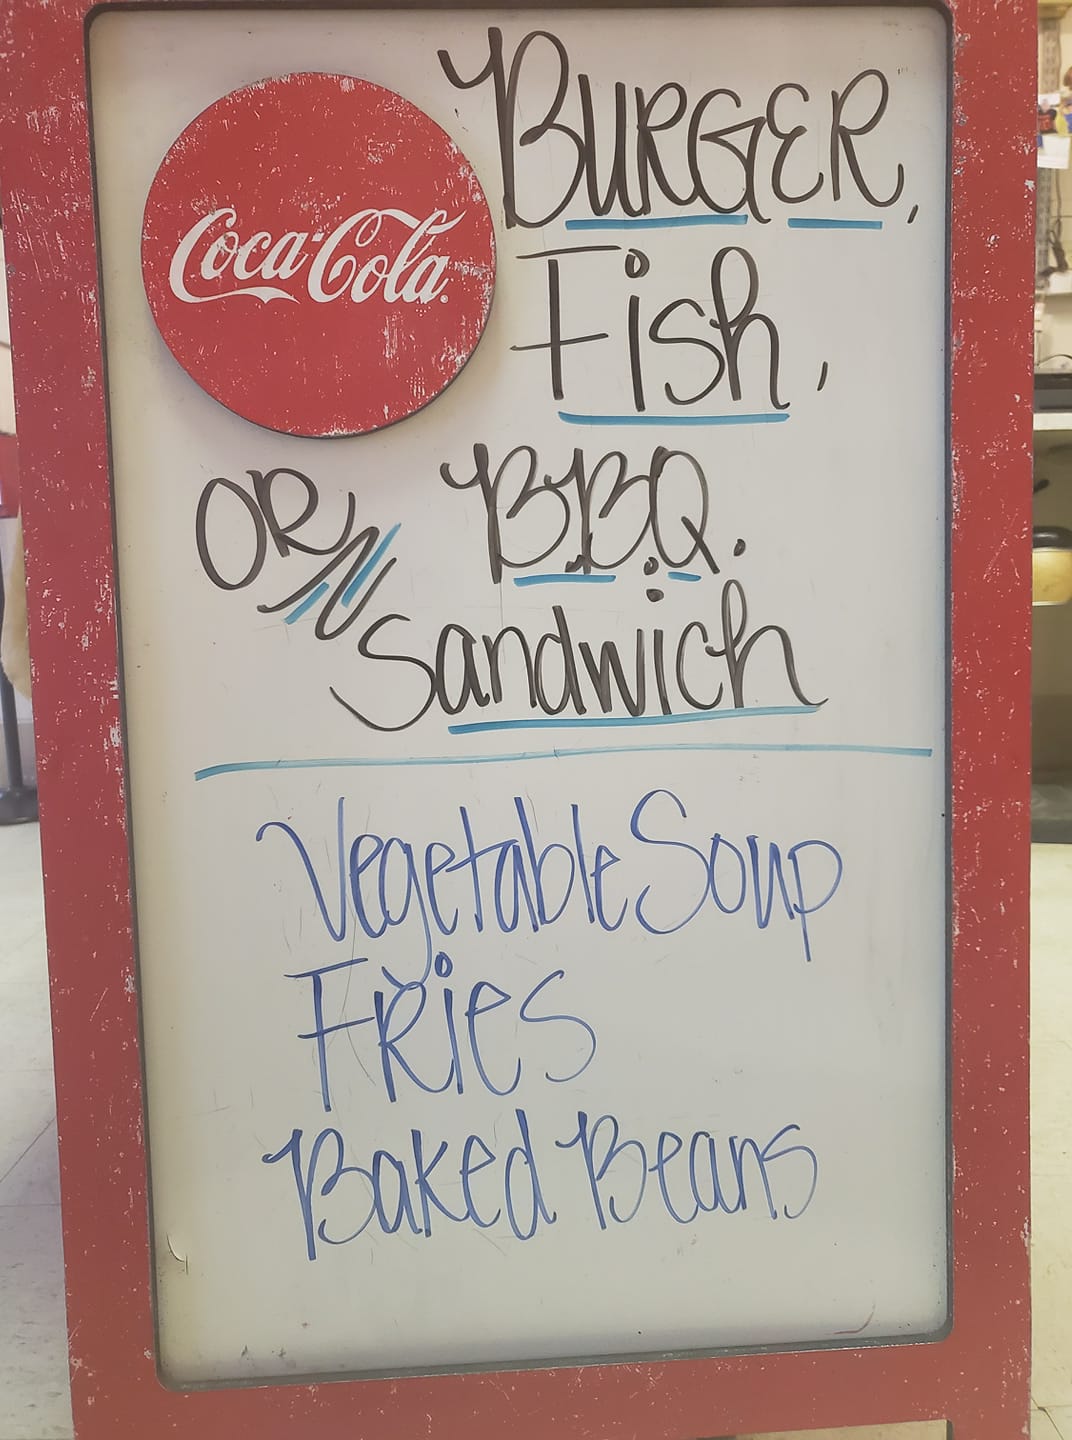 Coca-Cola
BURGER,
Fish,
OR B.B.Q.
Sandwich
Vegetable Soup
FRies
Baked Beans